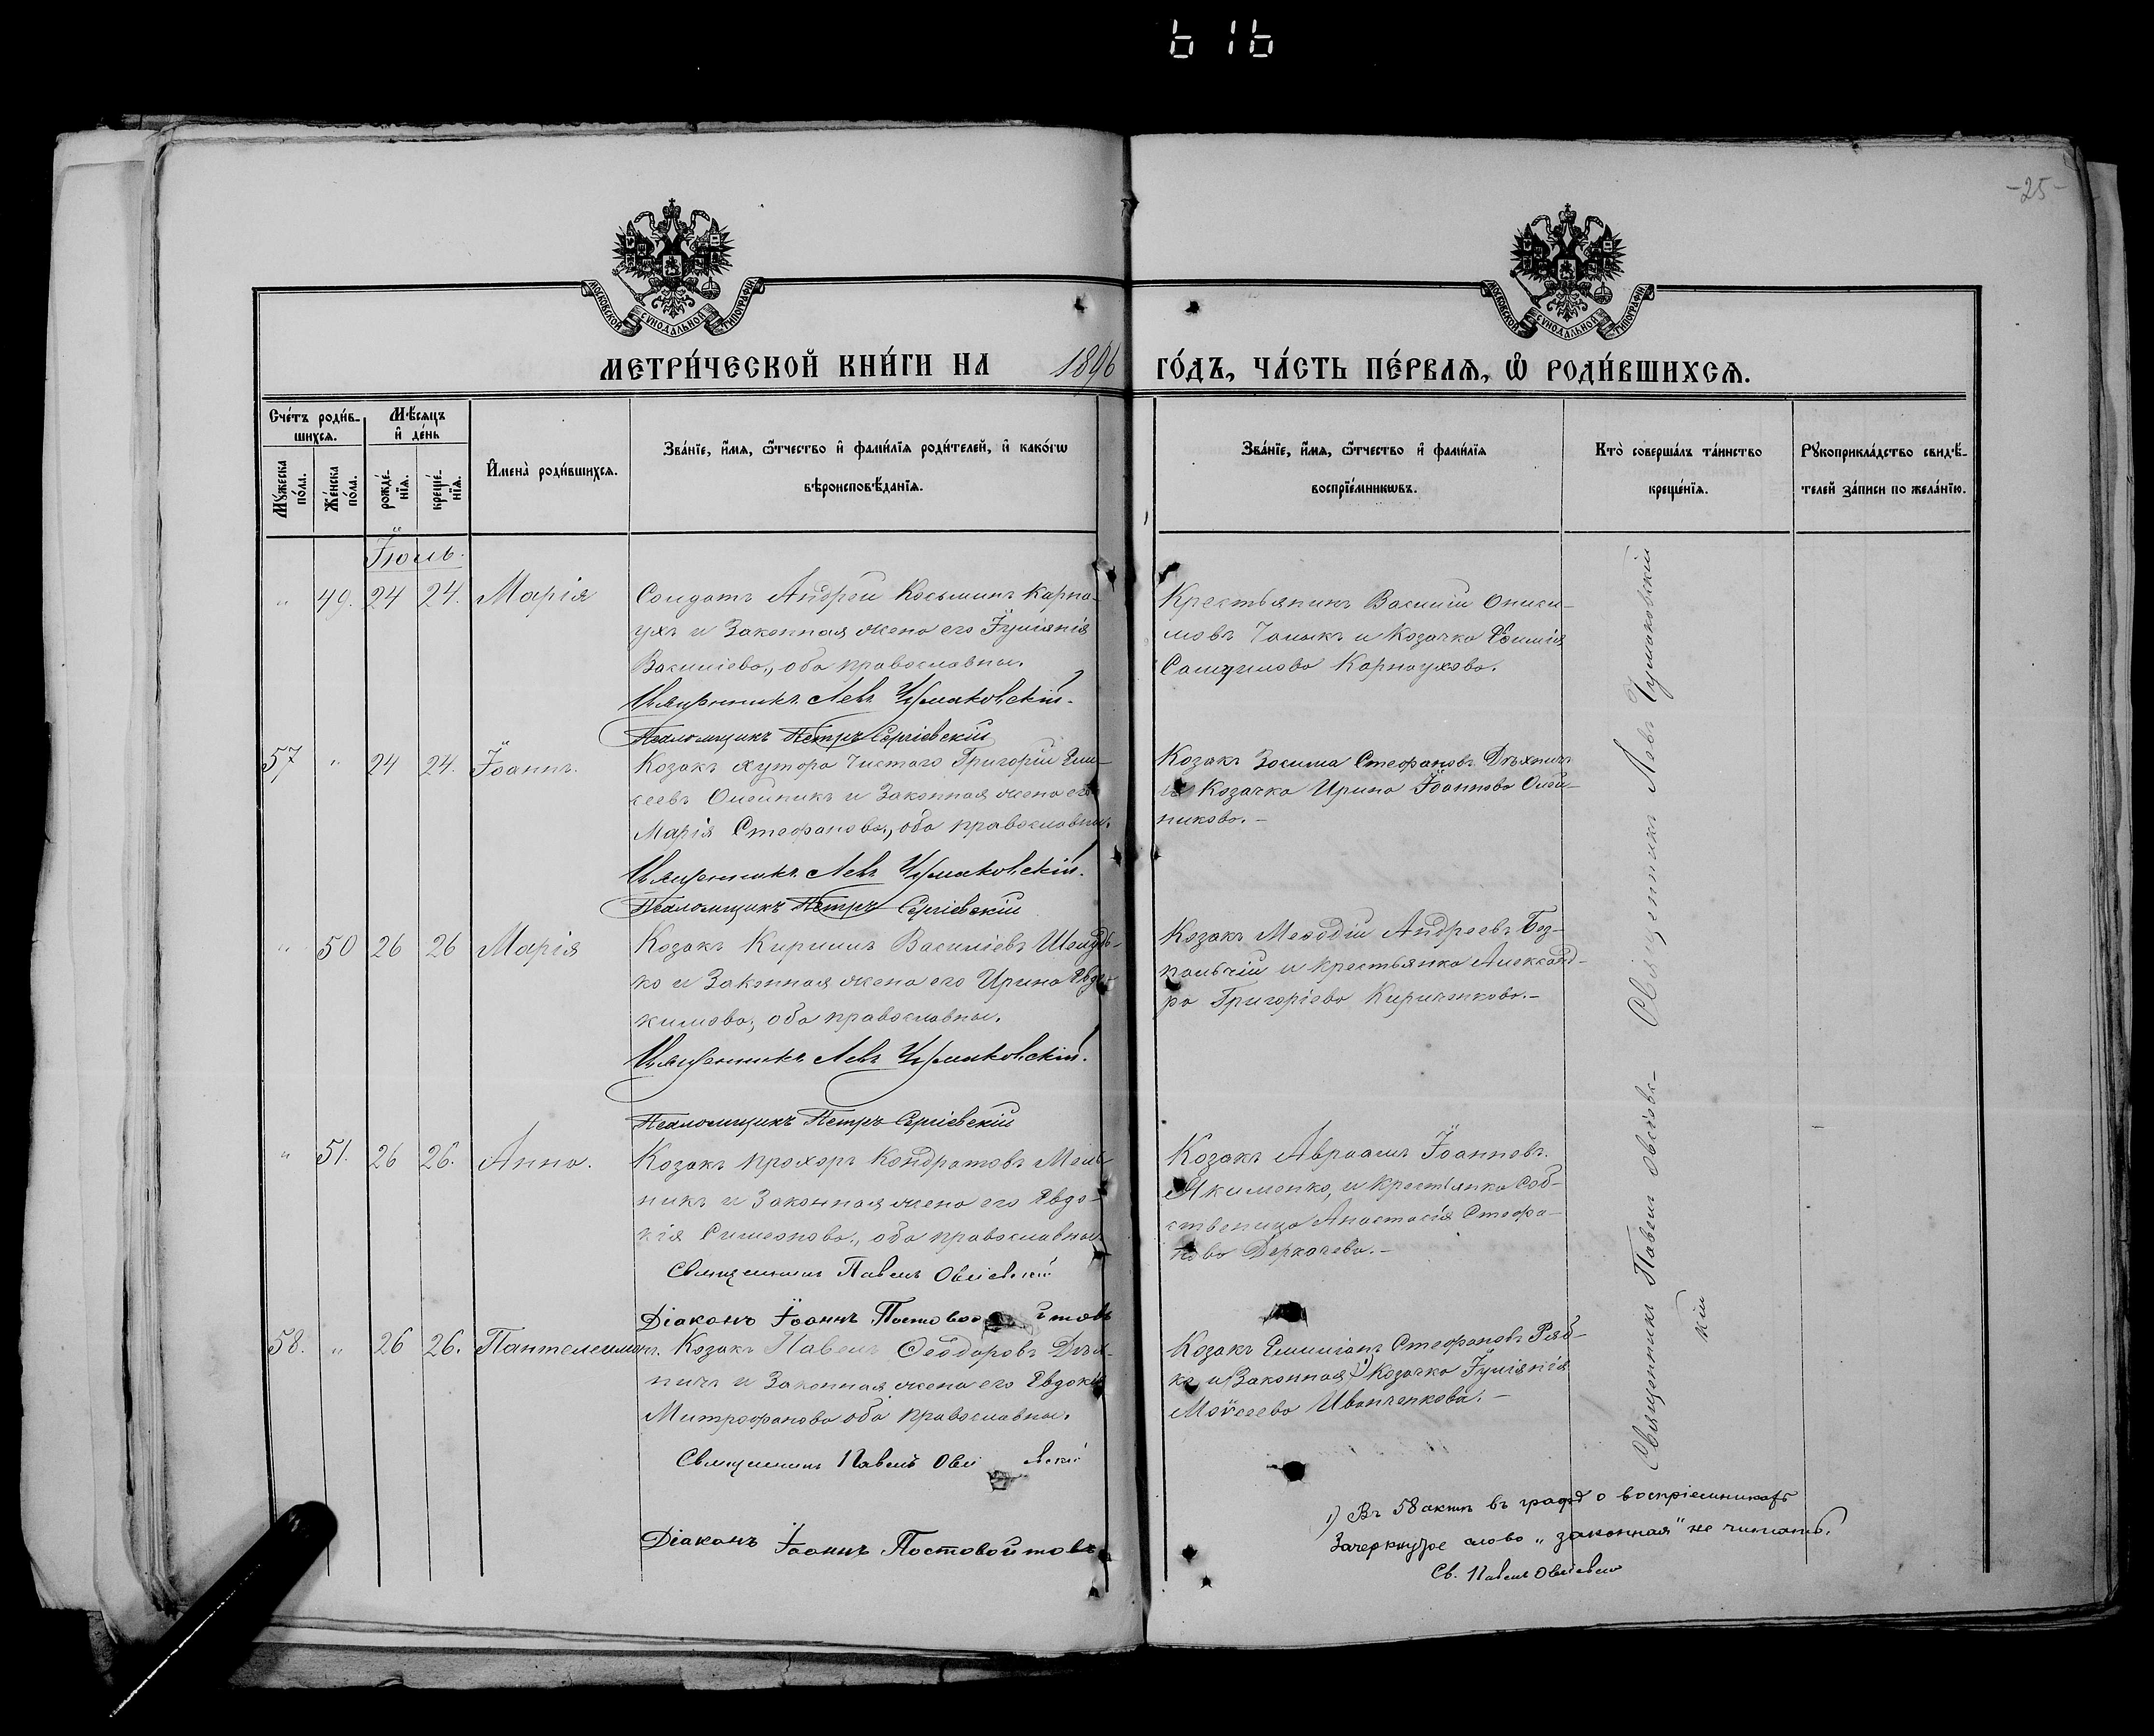 616
-25-
МОСКОВСКОЙ СѴНОДАЛЬНОЙ ТИПОГРАФІИ
МОСКОВСКОЙ СѴНОДАЛЬНОЙ ТИПОГРАФІИ
МЕТРИ́ЧЕСКОЙ КНИ́ГИ НА 1896 ГО́ДЪ, ЧА́СТЬ ПЕ́РВАѦ, Ѡ҆ РОДИ́ВШИХСѦ.
Сче́тъ роди́в-
шихсѧ.
Мѣ́сѧцъ
и҆ де́нь
Мꙋ́жеска
по́ла.
Же́нска
по́ла.
рожде́-
нїѧ.
креще́-
нїѧ.
И҆мена̀ роди́вшихсѧ.
Зва́нїе, и҆́мѧ, ѻ҆́тчество и҆ фами́лїѧ роди́телей, и҆ како́гѡ
вѣроисповѣ́данїѧ.
Зва́нїе, и҆́мѧ, ѻ҆́тчество и҆ фами́лїѧ
воспрїе́мникѡвъ.
Кто̀ соверша́лъ та́инство
креще́нїѧ.
Рꙋкоприкла́дство свидѣ́-
телей за́писи по жела́нїю.
Іюль.
" 49. 24 24. Марія
Солдатъ Андрей Косьминъ Карна-
ухъ и Законная жена его Іуліянія
Василіева, оба православны.
Священникъ Левъ Чумаковскій.
Псаломщикъ Петръ Сергіевскій
Крестьянинъ Василій Ониси-
мовъ Чалыкъ и Козачка
Самуилова Карнаухова.
57 " 24 24. Іоаннъ.
Козакъ хутора Чистаго Григорій Ели-
сеевъ Олейникъ и Законная жена его
Марія Стефанова, оба православны.
Священникъ Левъ Чумаковскій.
Псаломщикъ Петръ Сергіевскій
Козакъ Зосима Стефановъ
и Козачка Ирина Іоаннова Олей-
никова.-
" 50 26 26 Марія
Козакъ Кириллъ Василіевъ Шелудь-
ко и Законная жена его Ирина Евдо-
кимова, оба православны.
Священникъ Левъ Чумаковскій.
Псаломщикъ Петръ Сергіевскій
Козакъ Меѳодій Андреевъ Без-
пальчій и крестьянка Александ-
ра Григоріева Кириченкова.-
" 51. 26 26. Анна.
Козакъ Прохоръ Кондратовъ Мель-
никъ и Законная жена его Евдо-
кія Симеонова, оба православны.
Священникъ Павелъ Овсіевскій
Діаконъ Іоаннъ Постовойтовъ
Козакъ Авраамъ Іоанновъ
Якименко, и крестьянка соб-
ственица Анастасія Стефа-
нова Деркачева.-
58. " 26 26. Пантелеимонъ.
Козакъ Павелъ Ѳеодоровъ
и Законная жена его Евдокія
Митрофанова оба православны.
Священникъ Павелъ Овсіевскій
Діаконъ Іоаннъ Постовойтовъ
Козакъ Емиліанъ Стефановъ Ряб-
ко, и (Законная)¹⁾ Козачка Іуліянія
Моѵсеева Иванченкова.-
Священникъ Левъ Чумаковскій
Священникъ Павелъ Овсіевс-
кій
1) Въ 58 актѣ въ графѣ о воспріемникахъ
Зачеркнутое слово „законная" не читать.
Св. Павелъ Овсіевскій